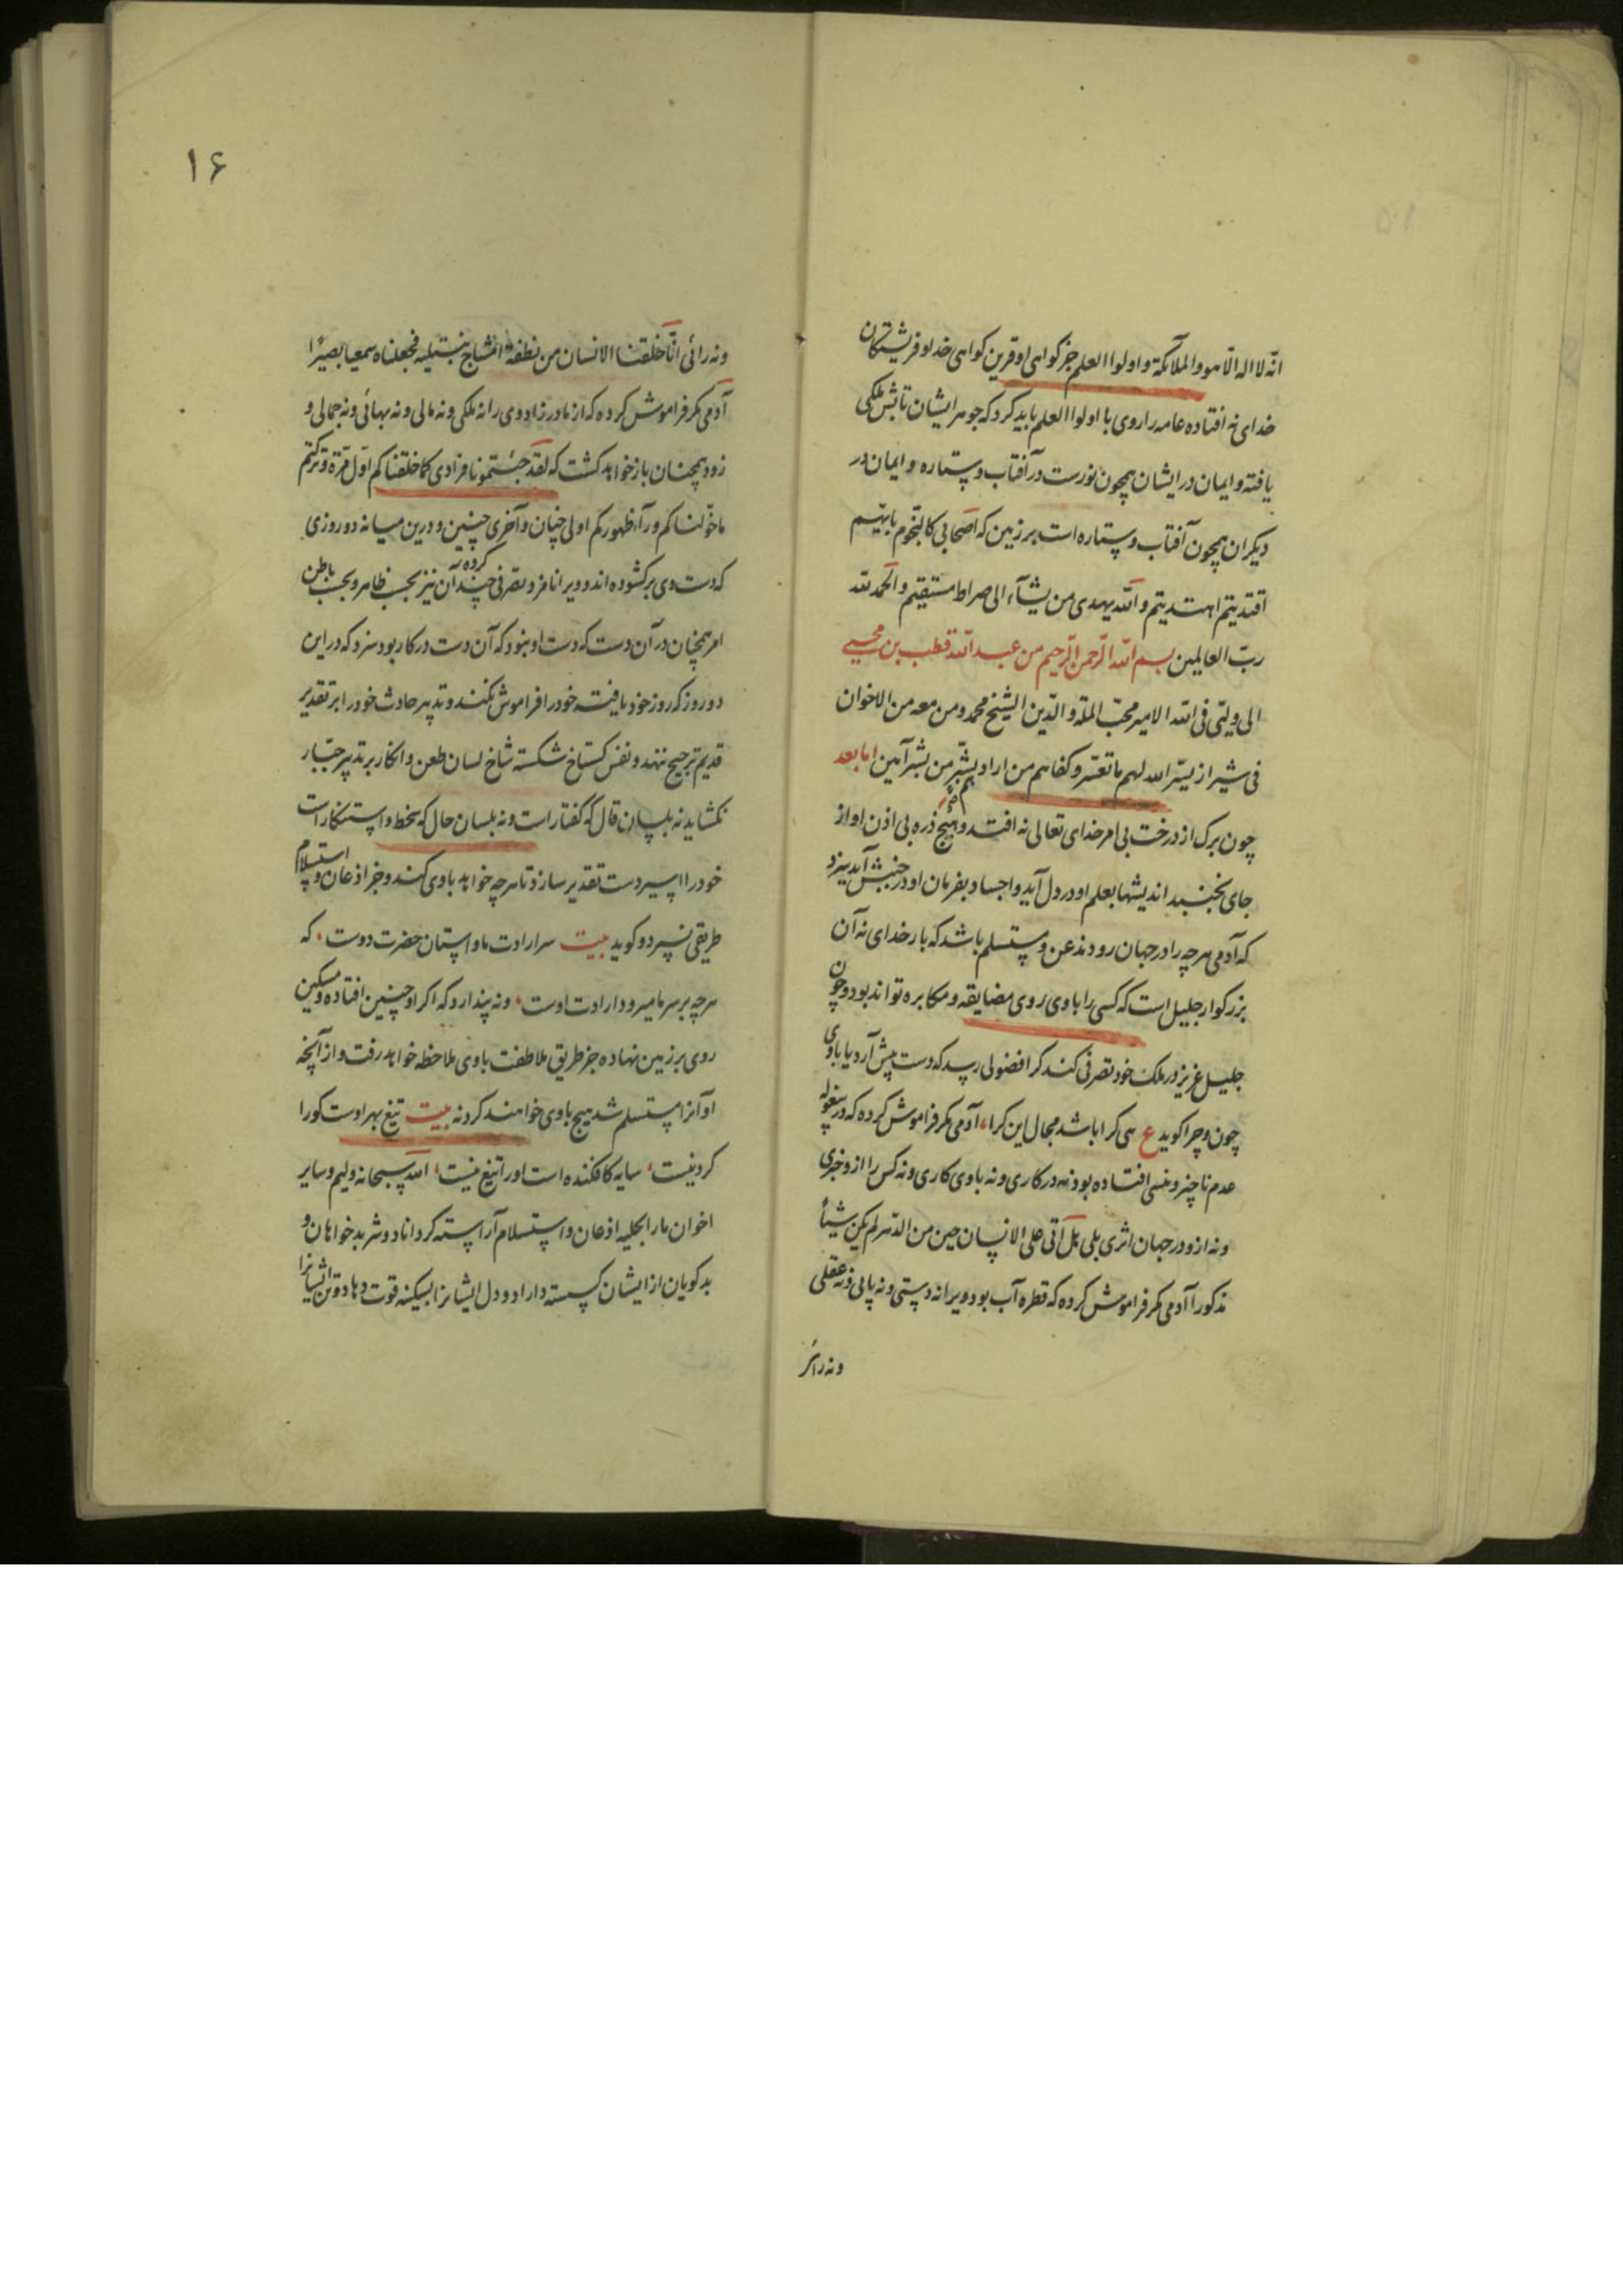 انّه لا اله الّا هو و الملآئکة و اولوا العلم جز کواهی او قرین کواهی خدا و فریشتکان
خدای نه افتاده عامه را روی با اولوا العلم باید کرد که جوهر ایشان تابش ملکی
یافته و ایمان در ایشان همچون نورست در آفتاب و ستاره و ایمان در
دیکران همچون آفتاب و ستاره است بر زمین که اصحابی کالنّجوم بایّهم
اقتدیتم اهتدیتم و اللّه یهدی من یشآء الی صراط مستقیم و الحمد للّه
ربّ العالمین بسم اللّه الرّحمن الرّحیم من عبد اللّه قطب بن محیی
الی ولیّی فی اللّه الامیر محبّ الملّة و الدّین الشیخ محمد و من معه من الاخوان
فی شیراز یسّر اللّه لهم ما تعسّر و کفاهم من اراد بهم بشّر من بشر آمین اما بعد
چون برک از درخت بی امر خدای تعالی نه افتد و هیچ ذره بی اذن او از
جای نجنبد اندیشها بعلم او در دل آید و اجساد بفرمان او در جنبش آید سزد
که آدمی هرچه را در جهان رود مذعن و مستسلم باشد که بار خدای نه آن
بزرکوار جلیل است که کسی را با وی روی مضایقه و مکابره تواند بود و چون
جلیل عزیز در ملک خود تصرفی کند کرا فضولی رسد که دست پیش آرد یا با وی
چون و چرا کوید ع هی کرا باشد مجال این کرا، آدمی مکر فراموش کرده که در بیغوله
عدم ناچیز و منسی افتاده بود نه در کاری و نه با وی کاری و نه کس را از و خبری
و نه ازو در جهان اثری بلی بل اتی علی الانسان حین من الدّهر لم یکن شیئًا
مذکورا آدمی مکر فراموش کرده که قطره آب بود ویرا نه دستی و نه پایی و نه عقلی
ونه رائی
۱۶
ونه رائی انّا خلقنا الانسان من نطفة امشاج نبتلیه فجعلناه سمیعا بصیرًا
آدمی مکر فراموش کرده که از مادر زاد وی را نه ملکی و نه مالی و نه بهائی و نه جمالی و
زود همچنان باز خواهد کشت که لقد جئتمونا فرادی کما خلقناکم اوّل مرّة و ترکتم
ما خوّلناکم ورآء ظهورکم اولی چنان و آخری چنین و درین میانه دو روزی
که دست وی برکشوده اند و ویرا نامزد تصرفی چند کرده آن نیز بحسب ظاهر و بحسب باطن
امر همچنان در آن دست که دست او نبود که آن دست در کار بود سزد که در این
دو روز که روز خود یافت خود را فراموش نکند و تدبیر حادث خود را بر تقدیر
قدیم ترجیح ننهد و نفس کستاخ شکسته شاخ لسان طعن و انکار بر تدبیر جبّار
نکشاید نه بلسان قال که کفتار است و نه بلسان حال که سخط و استنکار است
خود را اسیر دست تقدیر سازد تا هرچه خواهد با وی کند و جز اذعان و استسلام
طریقی نسپرد و کوید بیت سر ارادت ما و آستان حضرت دوست، که
هرچه بر سر ما میرود ارادت اوست، و نه پندارد که اکر او چنین افتاده و مسکین
روی بر زمین نهاده جز طریق ملاطفت با وی ملاحظه خواهد رفت و از آنچه
او آنرا مستسلم شد هیچ با وی خواهند کرد نه بیت تیغ بهر اوست کورا
کردنیست، سایه کافکنده است او را تیغ نیست، اللّه سبحانه ولیم و سایر
اخوان ما را بحلیه اذعان و استسلام آراسته کرداناد و شر بدخواهان و
بدکویان از ایشان کسسته داراد و دل ایشانرا بسکینه قوت دهاد و تن ایشانرا